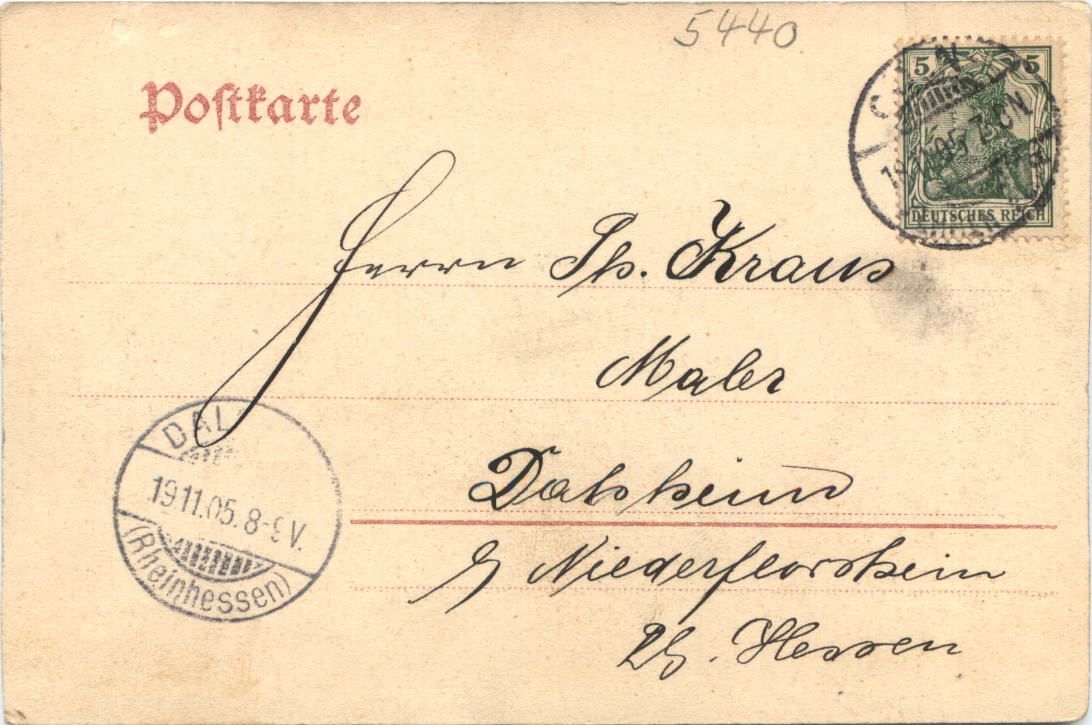 5440
Postkarte
5 5
DEUTSCHES REICH
7-8 N.
Herrn Ph. Kraus
Maler
Dalsheim
b/ Niederflörsheim
Rh. Hessen
DAL
19.11.05.8-9V.
(Rheinhessen)